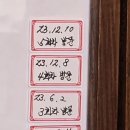 23.12.10
5회차 발송
23.12.8
4회차 발송
23.6.2
3회차 발송